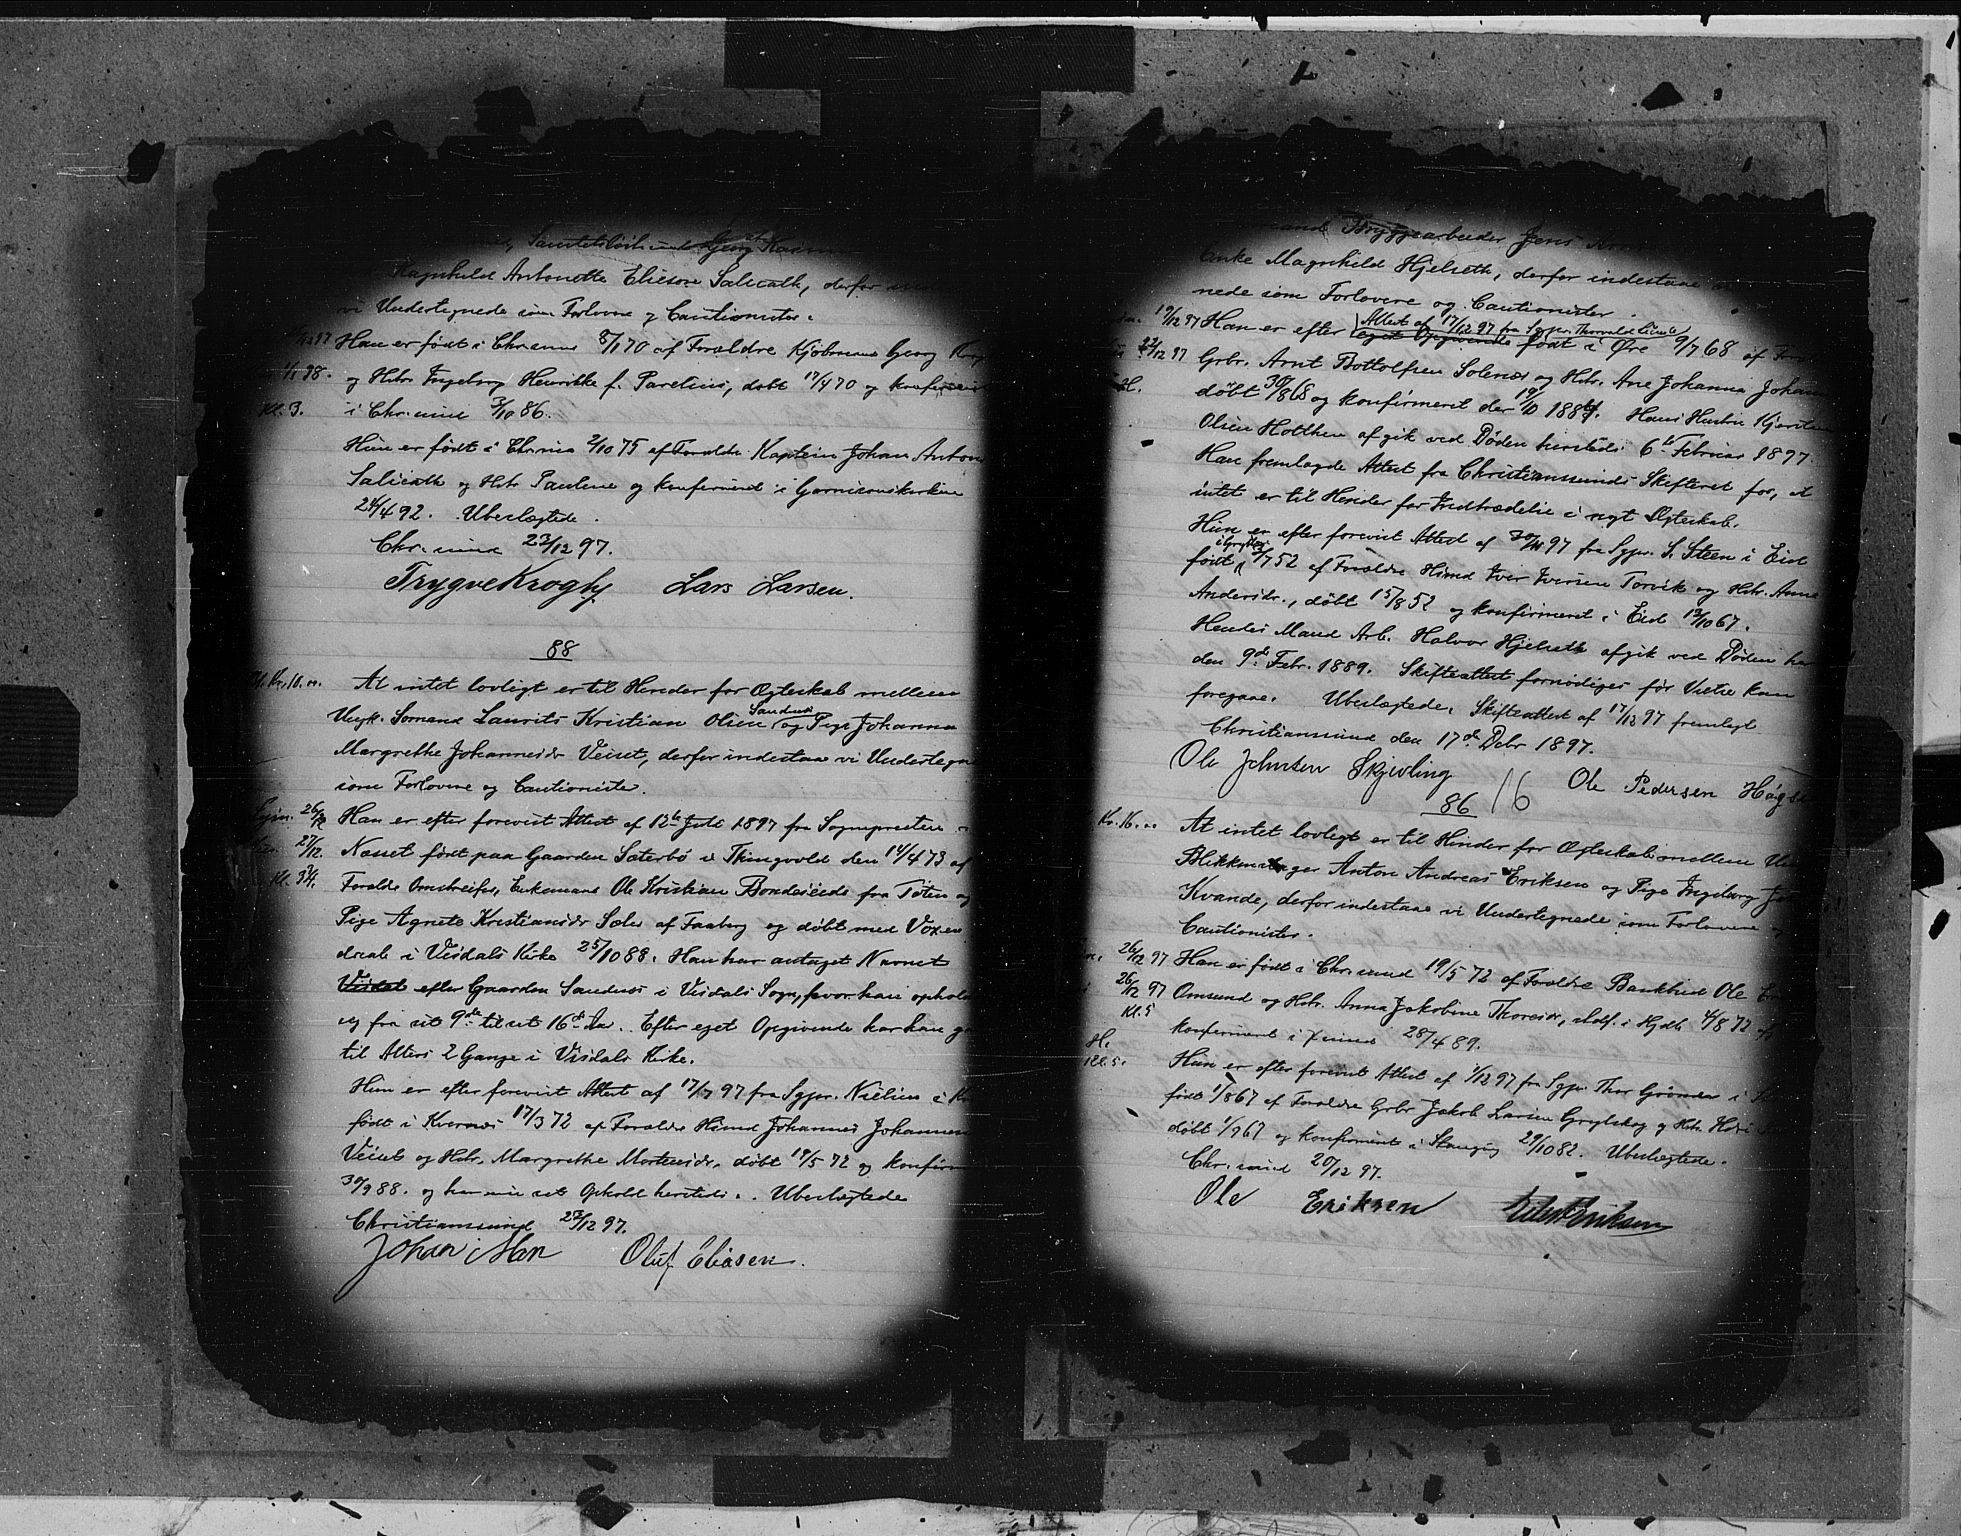 Sanitetslöitnant Georg
Ragnhild Antonette Eliesen Salicath, derfor
vi Undertegnede som Forlovere og Cautionister.
Han er født i Chr.sund 8/1 70 af Forældre Kjøbmand Georg
1/1 98. og Hstr. Ingeborg Henrikke f. Parelius, døbt 17/4 70 og konfirmeret
Kl. 3. i Chr.sund 3/10 86.
Hun er født i Chr.nia 2/10 75 af Forældre Kaptein Johan Anton
Salicath og Hstr. Pauline og konfirmeret i Garnisonskirken
24/4 92. Ubeslægtede.
Chr.sund 23/12 97.
Trygve Krogh Lars Larsen.
88
Kr. 16. At intet lovligt er til Hinder for Ægteskab mellem
Ungk. Sømand Laurits Kristian Olsen Sandnes og Pige Johanna
Margrethe Johannesdr Veiset, derfor indestaa vi Undertegn
som Forlovere og Cautionister.
26/12 Han er efter forevist Attest af 12te Juli 1897 fra Sognepresten i
27/12. Nesset født paa Gaarden Sæterbø i Thingvold den 14/4 73 af
Kl. Forældre Omstreifer, Enkemand Ole Kristian Bondesøide fra Toten og
Pige Agnete Kristiansdr Solo af Faaberg og døbt med Voxen
daab i Visdals Kirke 25/10 88. Han har antaget Navnet
efter Gaarden Sandnes i Visdals Sogn, hvor han opholdt
sig fra sit 9de til sit 16de Aar. Efter eget Opgivende har han
til Alters 2 Gange i Visdals Kirke.
Hun er efter forevist Attest af 17/7 97 fra Sgpr. Nielsen i
født i Kvernes 17/3 72 af Forældre Hsmd Johannes Johannesen
Veiset og Hstr. Margrethe Mortensdr. døbt 19/5 72 og konfirm
30/9 88. og har nu sit Ophold hersteds. Ubeslægtede
Christianssund 23/12 97.
Johan Moen Oluf Eliasen.
Bryggearbeider Jens
Anke Magnhild Hjelseth, derfor indestaa
nede som Forlovere og Cautionister.
19/12 97 Han er efter Attest af 17/12 97 fra Sgpr. Thorvald eget Opgivende født i Øre 9/7 68 af
22/12 97 Grbr. Arnt Bottolfsen Solenes og Hstr. Ane Johanna
døbt 30/8 68 og konfirmeret der 19/10 1884. Hans Hustru Kjersten
Olsen Holthen afgik ved Døden hersteds 6te Februar 1897.
Han fremlagde Attest fra Christianssunds Skifteret for, at
intet er til Hinder for Indtrædelse i nyt Ægteskab.
Hun er efter forevist Attest af 30/11 97 fra Sgpr. S. Steen i Eid
født i Grytten 7/7 52 af Forældre Hsmd Iver Iversen Torvik og Hstr. Anne
Andersdr., døbt 15/8 52 og konfirmeret i Eid 13/10 67.
Hendes Mand Arb. Halvor Hjelseth afgik ved Døden her
den 9de Febr. 1889. Skifteattest fornødiges før Vielse kan
foregaa. Ubeslægtede. Skifteattest af 17/12 97 fremlagt
Christianssund den 17de Debr 1897.
Ole Johnsen Skjevling Ole Pedersen
86 16
Kr. 16. At intet lovligt er til Hinder for Ægteskab mellem
Blikkenslager Anton Andreas Eriksen og Pige Ingeborg
Kvande, derfor indestaa vi Undertegnede som Forlovere og
Cautionister.
26/12 97 Han er født i Chr.sund 19/5 72 af Forældre Bankbud Ole
26/12 97 Omsund og Hstr. Anna Jakobine Thoresdr, døbt i Hjdb. 4/8 72 og
Kl. 5 konfirmeret i 28/4 89.
Kl. 5. Hun er efter forevist Attest af 1/12 97 fra Sgpr. Thor Grønner i
født 1/8 67 af Forældre Grbr Jakob Larsen Grytskog og Hstr.
døbt 1/9 67 og konfirmeret i Stangvig 29/10 82. Ubeslægtede.
Chr.sund 20/12 97.
Ole Eriksen Eriksen